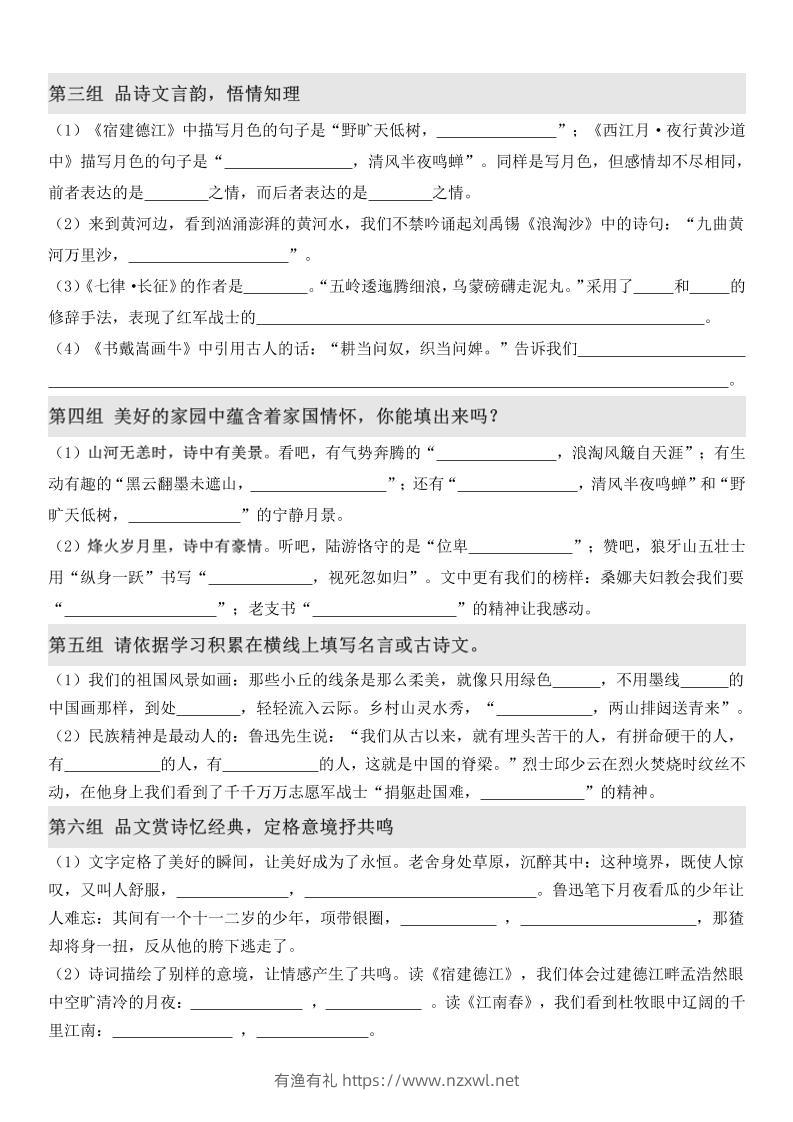 第三组 品诗文言韵，悟情知理
（1）《宿建德江》中描写月色的句子是“野旷天低树，_______________”；《西江月·夜行黄沙道
中》描写月色的句子是“________________，清风半夜鸣蝉”。同样是写月色，但感情却不尽相同，
前者表达的是________之情，而后者表达的是________之情。
（2）来到黄河边，看到汹涌澎湃的黄河水，我们不禁吟诵起刘禹锡《浪淘沙》中的诗句：“九曲黄
河万里沙，____________________”。
（3）《七律·长征》的作者是________。“五岭逶迤腾细浪，乌蒙磅礴走泥丸。”采用了_____和_____的
修辞手法，表现了红军战士的________________________________________________________。
（4）《书戴嵩画牛》中引用古人的话：“耕当问奴，织当问婢。”告诉我们_____________________
_____________________________________________________________________________________。
第四组 美好的家园中蕴含着家国情怀，你能填出来吗？
（1）山河无恙时，诗中有美景。看吧，有气势奔腾的“_______________，浪淘风簸自天涯”；有生
动有趣的“黑云翻墨未遮山，_________________”；还有“_______________，清风半夜鸣蝉”和“野
旷天低树，______________”的宁静月景。
（2）烽火岁月里，诗中有豪情。听吧，陆游恪守的是“位卑_____________”；赞吧，狼牙山五壮士
用“纵身一跃”书写“_____________，视死忽如归”。文中更有我们的榜样：桑娜夫妇教会我们要
“___________________”；老支书“__________________”的精神让我感动。
第五组 请依据学习积累在横线上填写名言或古诗文。
（1）我们的祖国风景如画：那些小丘的线条是那么柔美，就像只用绿色______，不用墨线______的
中国画那样，到处________，轻轻流入云际。乡村山灵水秀，“____________，两山排闼送青来”。
（2）民族精神是最动人的：鲁迅先生说：“我们从古以来，就有埋头苦干的人，有拼命硬干的人，
有____________的人，有____________的人，这就是中国的脊梁。”烈士邱少云在烈火焚烧时纹丝不
动，在他身上我们看到了千千万万志愿军战士“捐躯赴国难，_____________”的精神。
第六组 品文赏诗忆经典，定格意境抒共鸣
（1）文字定格了美好的瞬间，让美好成为了永恒。老舍身处草原，沉醉其中：这种境界，既使人惊
叹，又叫人舒服，______________，_____________________________。鲁迅笔下月夜看瓜的少年让
人难忘：其间有一个十一二岁的少年，项带银圈，____________，______________________，那猹
却将身一扭，反从他的胯下逃走了。
（2）诗词描绘了别样的意境，让情感产生了共鸣。读《宿建德江》，我们体会过建德江畔孟浩然眼
中空旷清冷的月夜：______________，____________。读《江南春》，我们看到杜牧眼中辽阔的千
里江南：_______________，______________。
有渔有礼 https://www.nzxwl.net